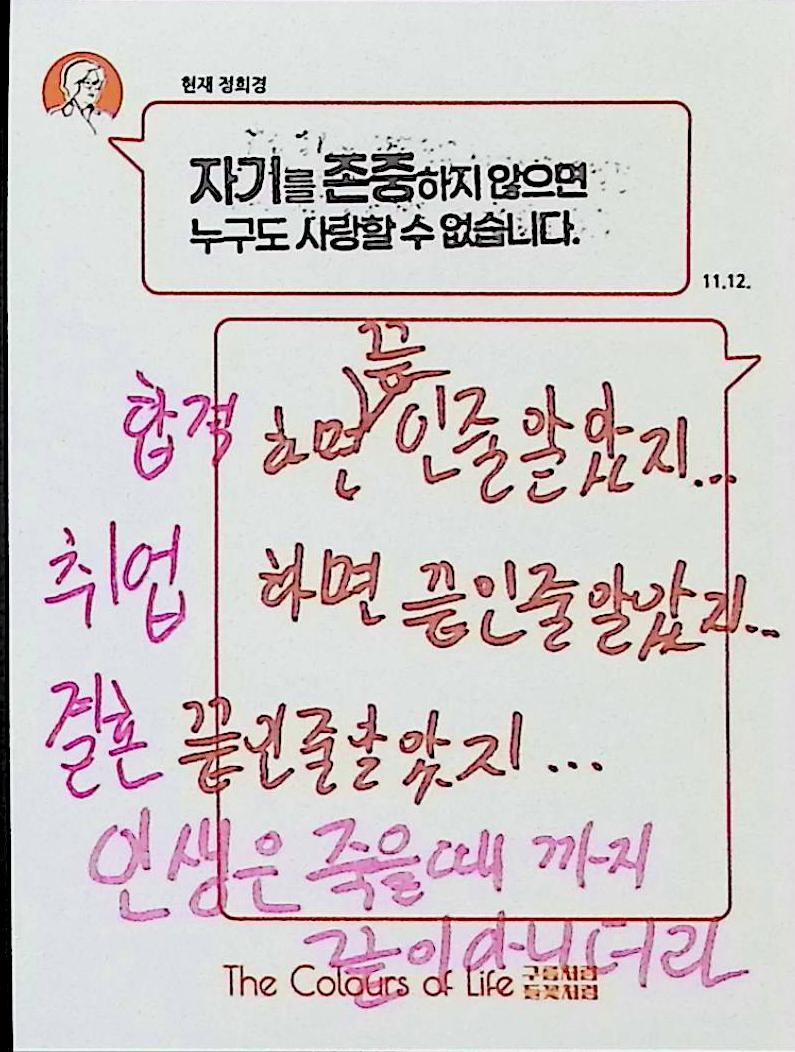 현재 정희경
자기를 존중하지 않으면
누구도 사랑할 수 없습니다.
11.12.
합격 하면 끝인줄 알았지...
취업 하면 끝인줄 알았지...
결혼 끝인줄 알았지...
인생은 죽을때 까지
끝이 아니더라
The Colours of Life 구름처럼 들꽃처럼